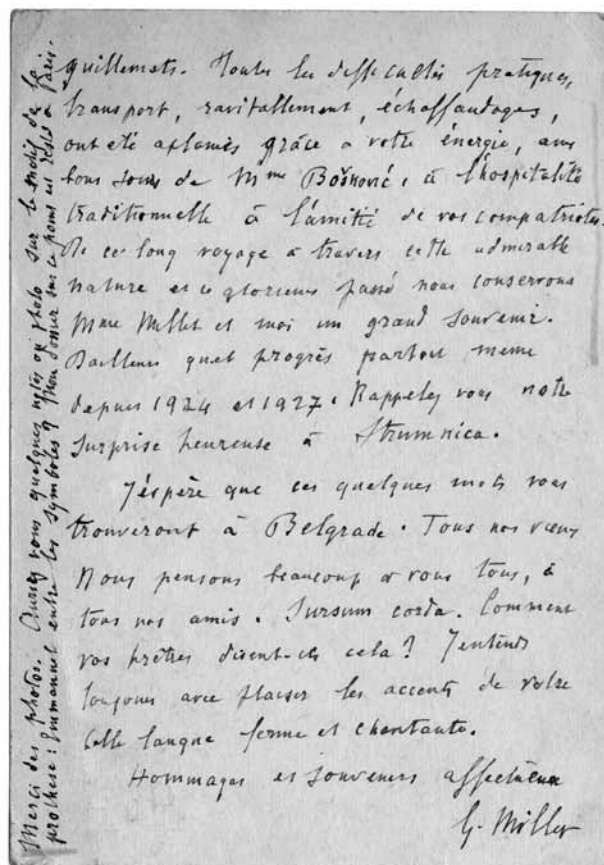 guillemets. Toutes les difficultés pratiques,
transport, ravitallement, échaffaudages,
ont été aplanies grâce a votre énergie, aux
bons soins de Mme Bošković, à l'hospitalité
traditionnelle à l'amitié de vos compatriotes.
De ce long voyage a travers cette admirable
nature et ce glorieux passé nous conservons
Mme Millet et moi un grand souvenir.
Dailleurs quel progrès partout meme
depuis 1924 et 1927. Rappelez vous notre
surprise heureuse à Strumnica.
J'éspère que ces quelques mots vous
trouveront à Belgrade. Tous nos vœux
Nous pensons beaucoup a vous tous, à
tous nos amis. Sursum corda. Comment
vos prêtres disent-ils cela? J'entends
toujours avec plaisir les accents de votre
belle langue ferme et chantante.
Hommages et souvenirs affectueux
G. Millet
Merci des photos. Auriez vous quelques notes ou photo sur le motif de la
prothese: Emmanuel entre les symboles q mon dossier sur ce point est resté a Paris.